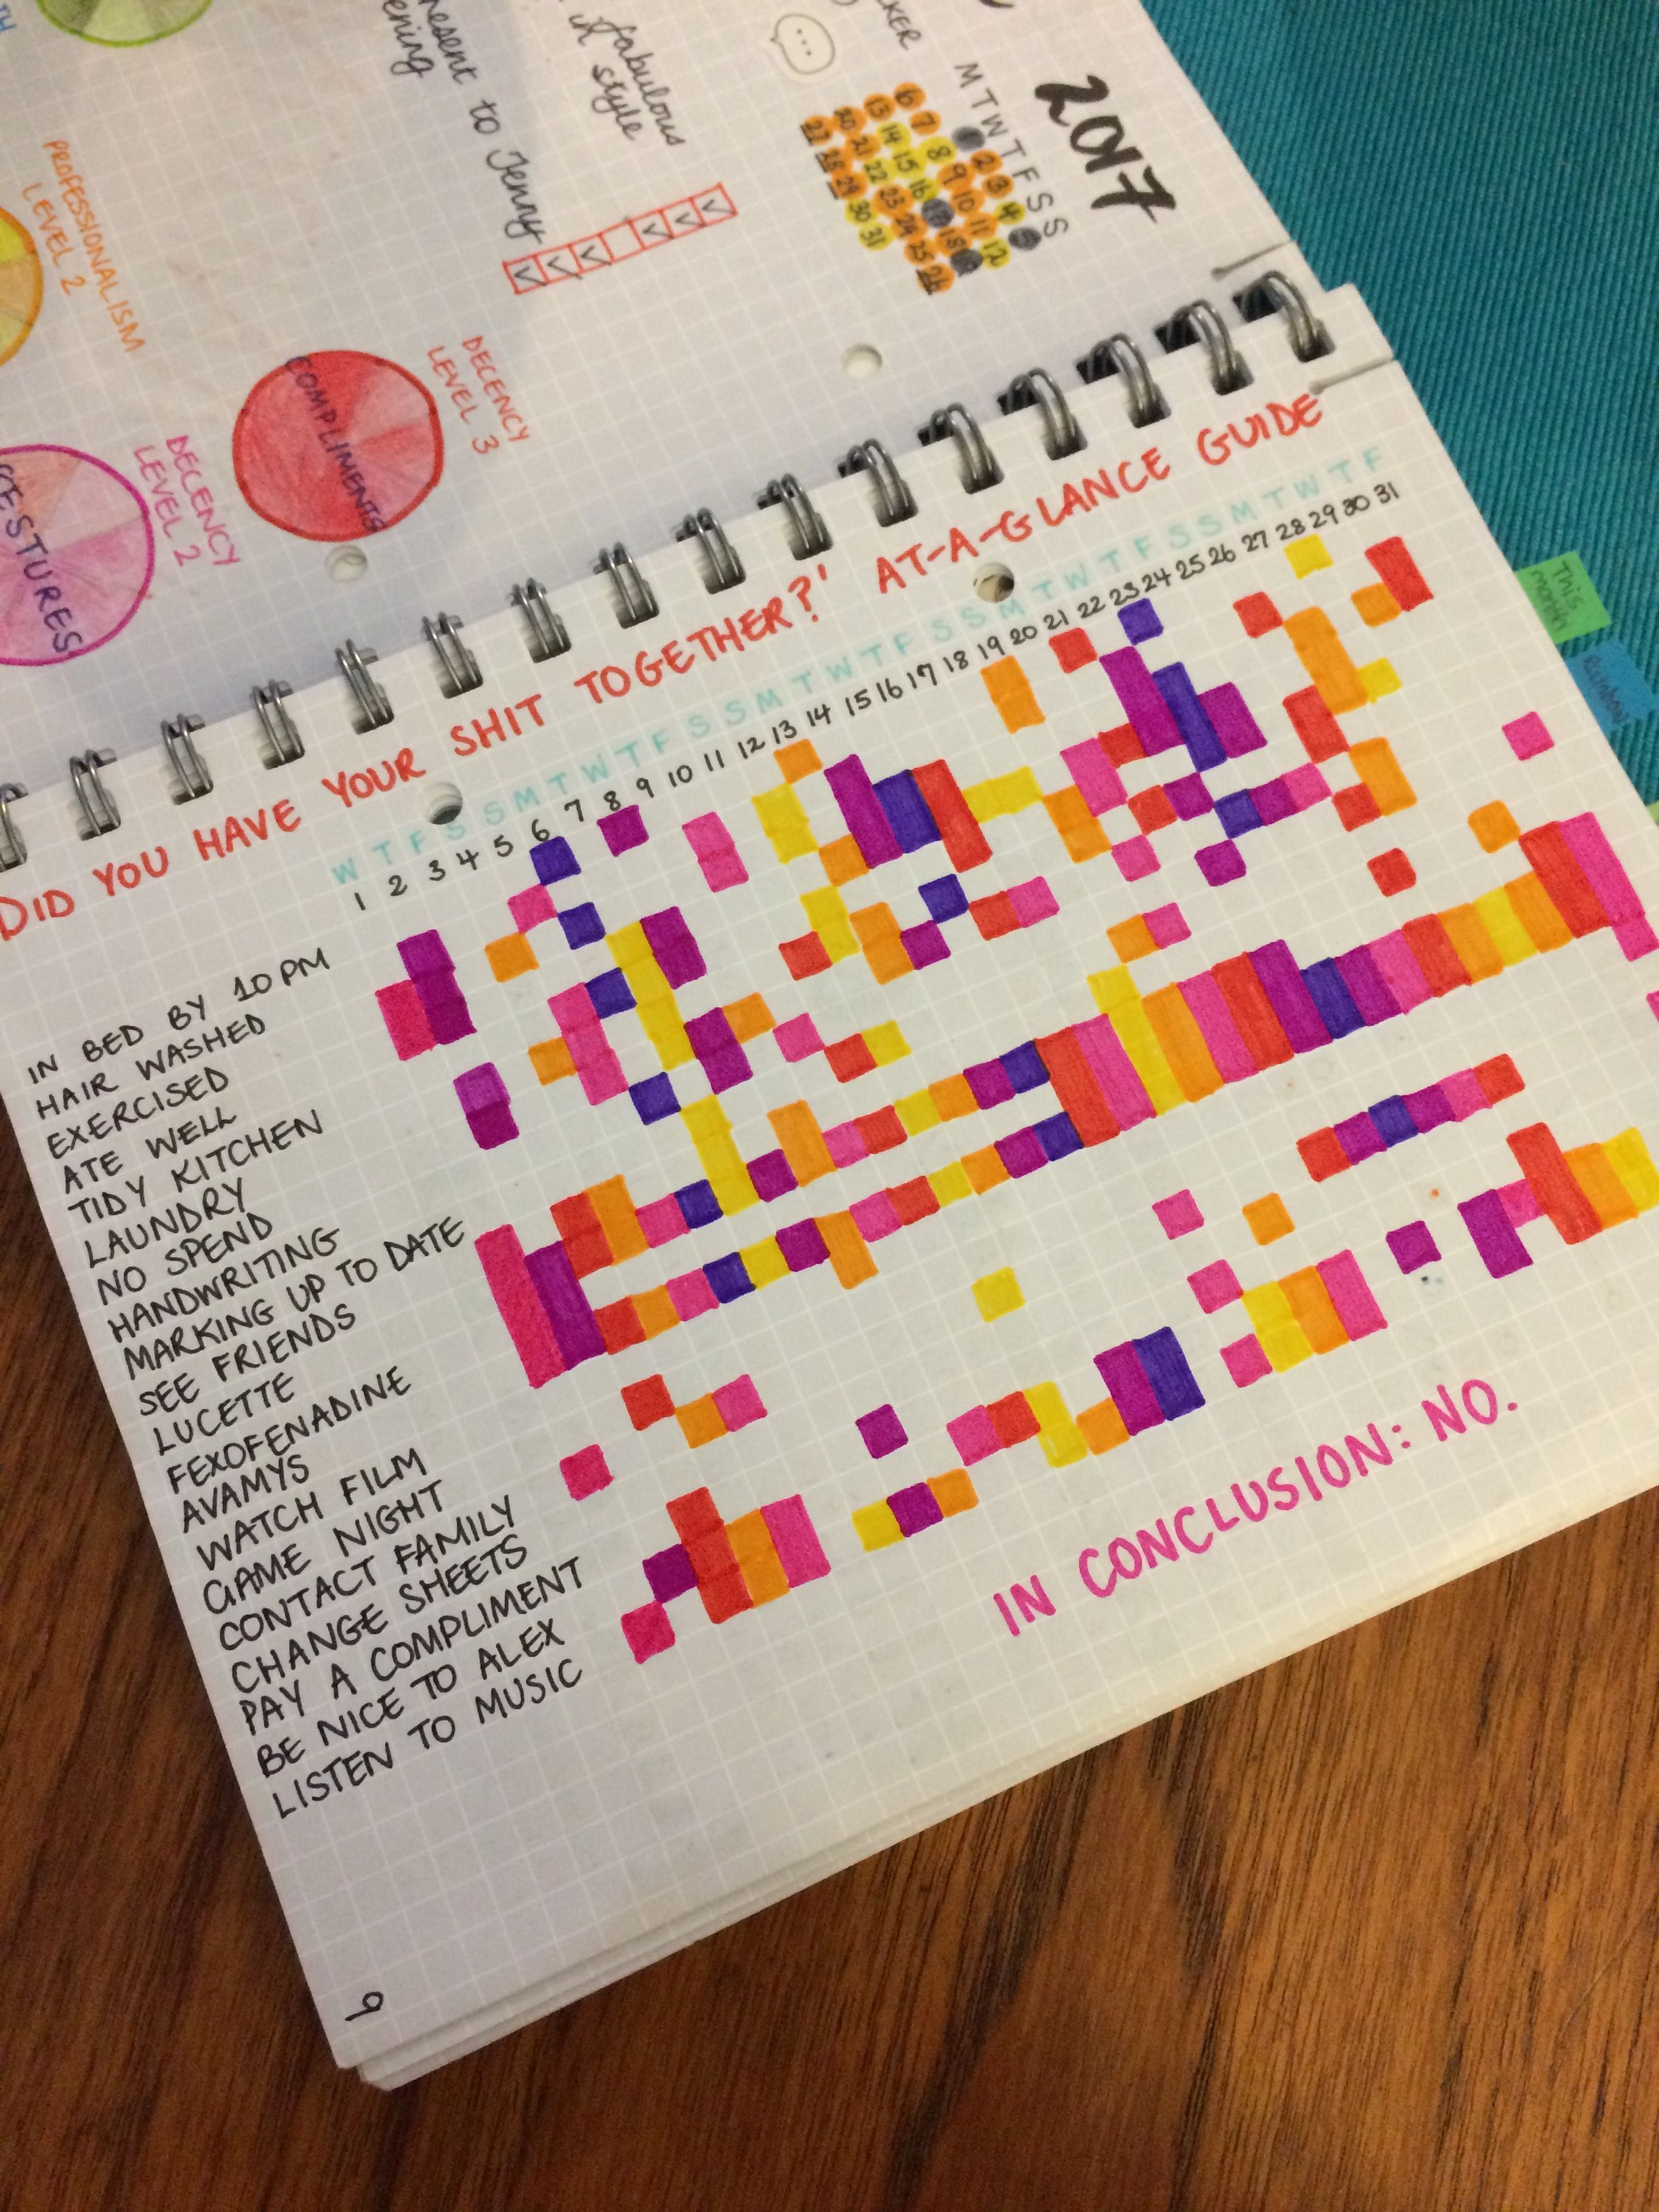 2017
M T W T F S S
1 2 3 4 5
6 7 8 9 10 11 12
13 14 15 16 17 18 19
20 21 22 23 24 25 26
27 28 29 30 31
...
fabulous
in style
present to Jenny
PROFESSIONALISM
LEVEL 2
COMPLIMENTS
DECENCY
LEVEL 3
GESTURES
DECENCY
LEVEL 2
This
month
DID YOU HAVE YOUR SHIT TOGETHER?' AT-A-GLANCE GUIDE
W T F S S M T W T F S S M T W T F S S M T W T F S S M T W T F
1 2 3 4 5 6 7 8 9 10 11 12 13 14 15 16 17 18 19 20 21 22 23 24 25 26 27 28 29 30 31
IN BED BY 10 PM
HAIR WASHED
EXERCISED
ATE WELL
TIDY KITCHEN
LAUNDRY
NO SPEND
HANDWRITING
MARKING UP TO DATE
SEE FRIENDS
LUCETTE
FEXOFENADINE
AVAMYS
WATCH FILM
GAME NIGHT
CONTACT FAMILY
CHANGE SHEETS
PAY A COMPLIMENT
BE NICE TO ALEX
LISTEN TO MUSIC
IN CONCLUSION: NO.
9